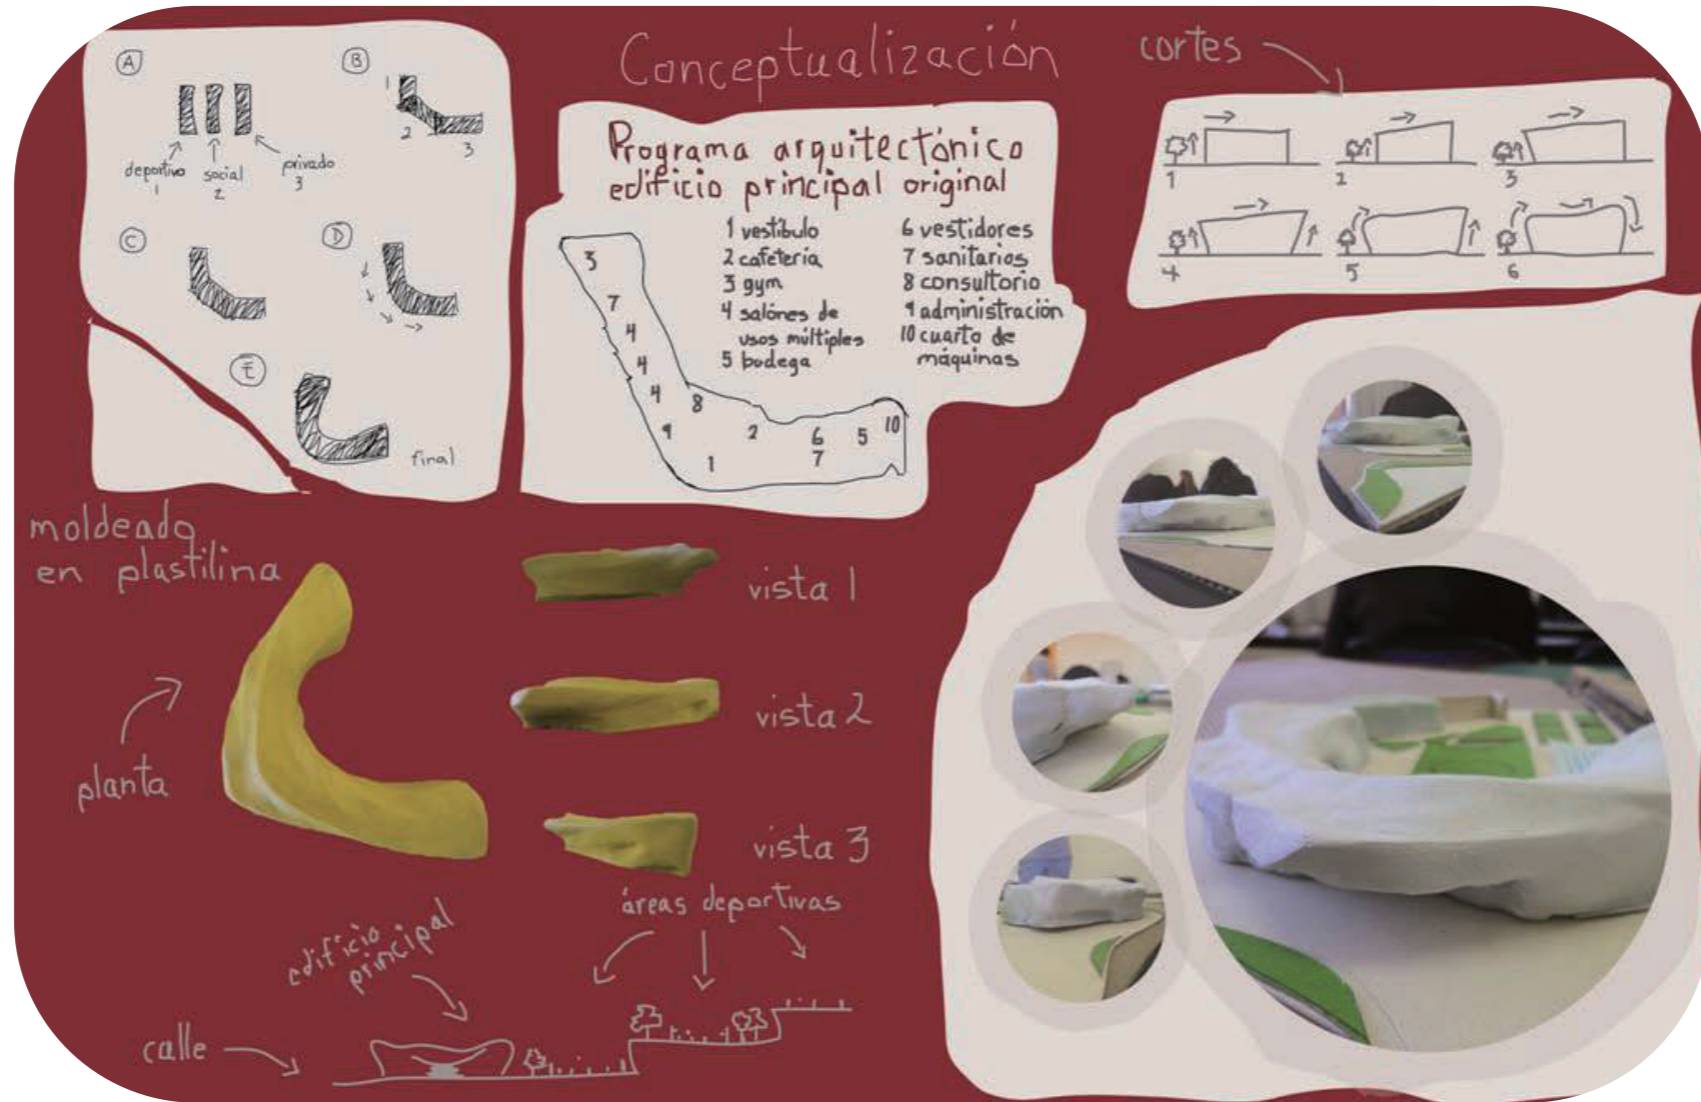 Conceptualización
A
deportivo
1
social
2
privado
3
B
1
2
3
C
D
E
final
Programa arquitectónico
edificio principal original
1 vestíbulo
2 cafeteria
3 gym
4 salónes de
usos múltiples
5 bodega
6 vestidores
7 sanitarios
8 consultorio
9 administración
10 cuarto de
máquinas
3
7
4
4
4
8
9
1
2
6
7
5
10
cortes
1
2
3
4
5
6
moldeado
en plastilina
planta
vista 1
vista 2
vista 3
áreas deportivas
edificio
principal
calle